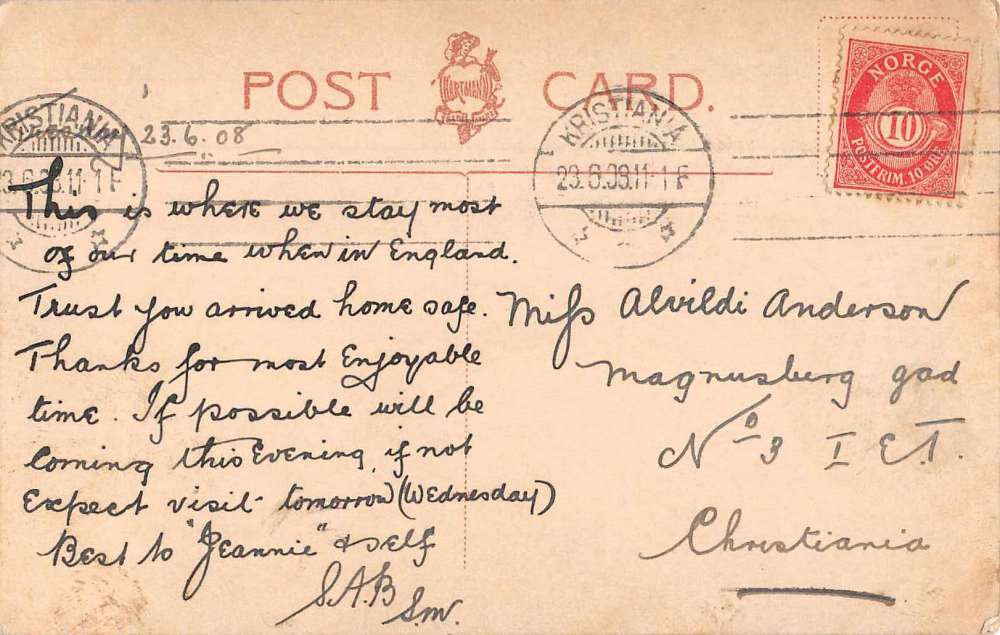 POST CARD.
HARTMANN
TRADE MARK
NORGE
10
POSTFRIM. 10 ØRE
KRISTIANIA
23.6.08.11-1 F
KRISTIANIA
23.6.08.11-1 F
23.6.08
This is where we stay most
of our time when in England.
Trust you arrived home safe.
Thanks for most Enjoyable
time. If possible will be
coming this Evening, if not
Expect visit tomorrow (Wednesday)
Best to "Jeannie" & self
S.A.B
S.W.
Miss Alvildi Anderson
Magnusberg gad
No 3 I ET.
Christiania